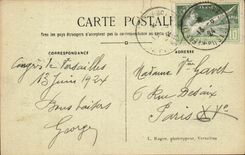 CARTE POSTALE
Tous les pays étrangers n'acceptent pas la correspondance au recto
CORRESPONDANCE
ADRESSE
Congrès de Versailles
13 Juin 1924
Bons baisers
Georges
Madame Vve Gavet
6 Rue Desaix
Paris XVe
L. Ragot, phototypeur, Versailles